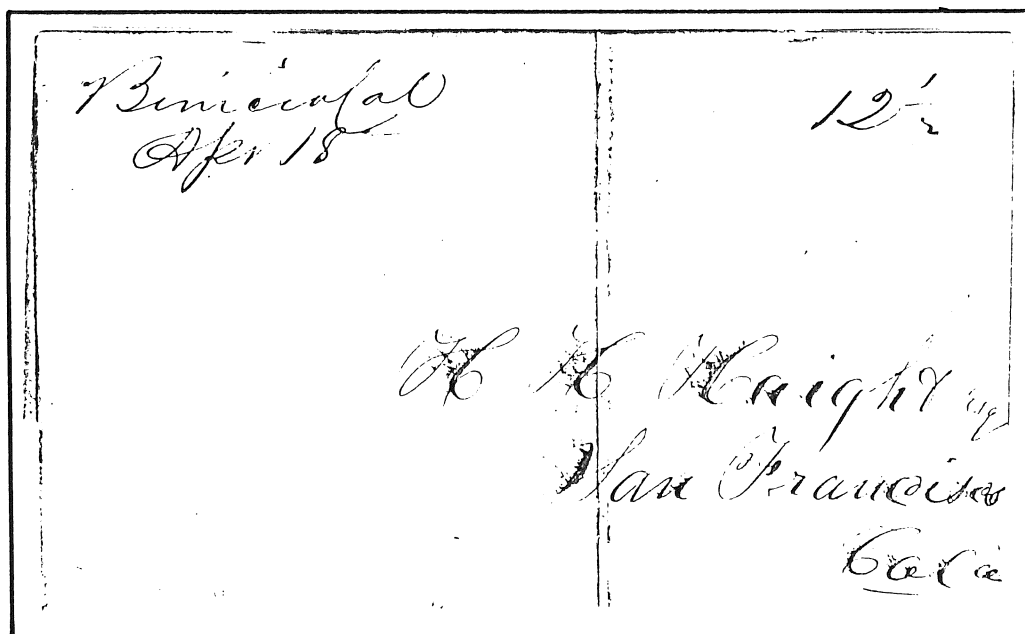 Benicia Cal
Apr 18
12½
H H Haight Esq
San Francisco
Cala